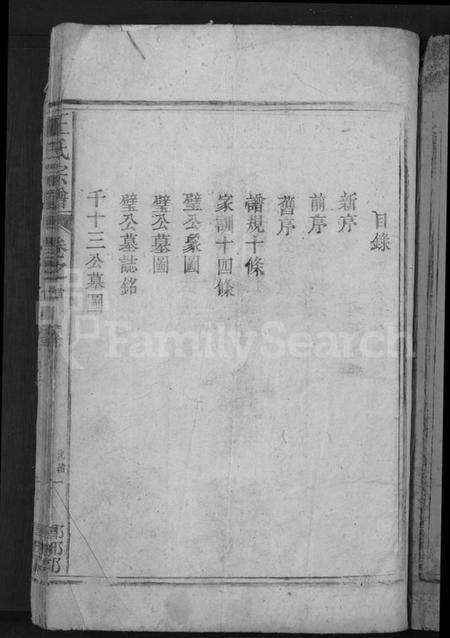 目錄
新序
前序
舊序
譜規十條
家訓十四條
璧公象圖
璧公墓圖
璧公墓誌銘
千十三公墓圖
王氏宗譜
卷之首
FamilySearch